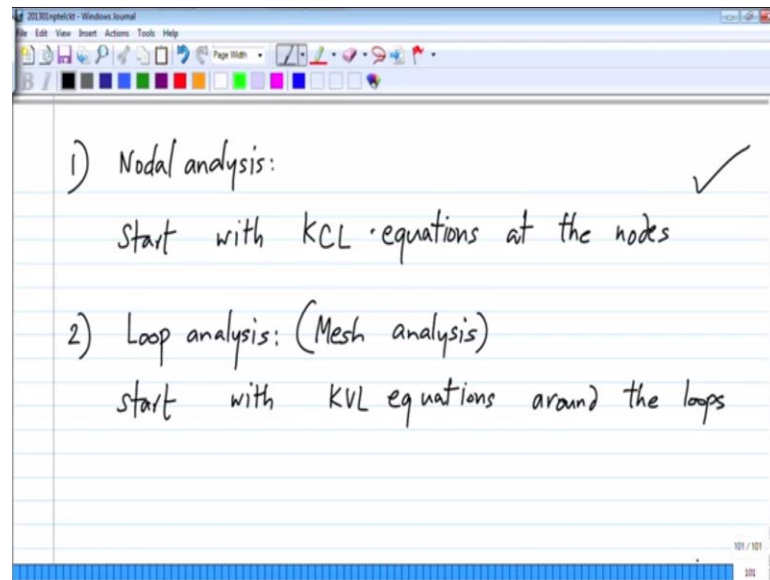 201301nptelckt - Windows Journal
File Edit View Insert Actions Tools Help
Page Width
B I
1) Nodal analysis:
Start with KCL equations at the nodes
2) Loop analysis: (Mesh analysis)
start with KVL equations around the loops
101 / 101
101